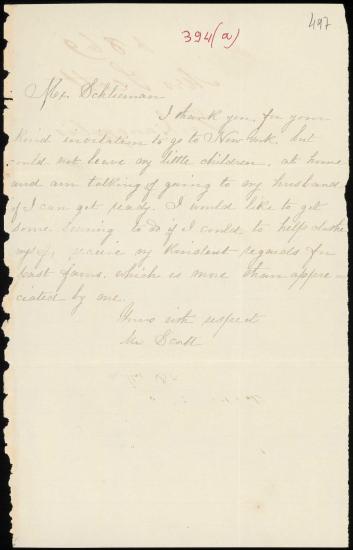 497
394(a)
Mr. Schlieman
I thank you for your
kind invitation to go to New ork, but
could not leave my little children, at home
and am talking of going to my husband
if I can get ready. I would like to get
some sewing to do if I could to help clothe
myself, receive my kindest regards for
past favors. which is more than appre
ciated by me.
Yours with respect
Mrs Scott